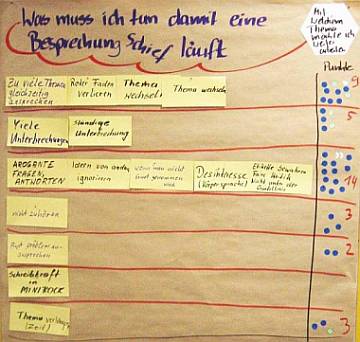 Was muss ich tun damit eine
Besprechung Schief läuft
Mit
welchem
Thema
möchte ich
weiter
arbeiten
Punkte
Zu viele Themen
gleichzeitig
besprechen
Roter Faden
verlieren
Thema
wechseln
Thema wechseln
9
Viele
Unterbrechungen
ständige
Unterbrechung
5
AROGANTE
FRAGEN,
ANTWORTEN
Ideen von andere
ignorieren
wenn man nicht
ernst genommen
wird
Desinteresse
(Körpersprache)
14
nicht zuhören
3
2
Schreibkraft
im
MINIROCK
Thema
(Zeit)
3